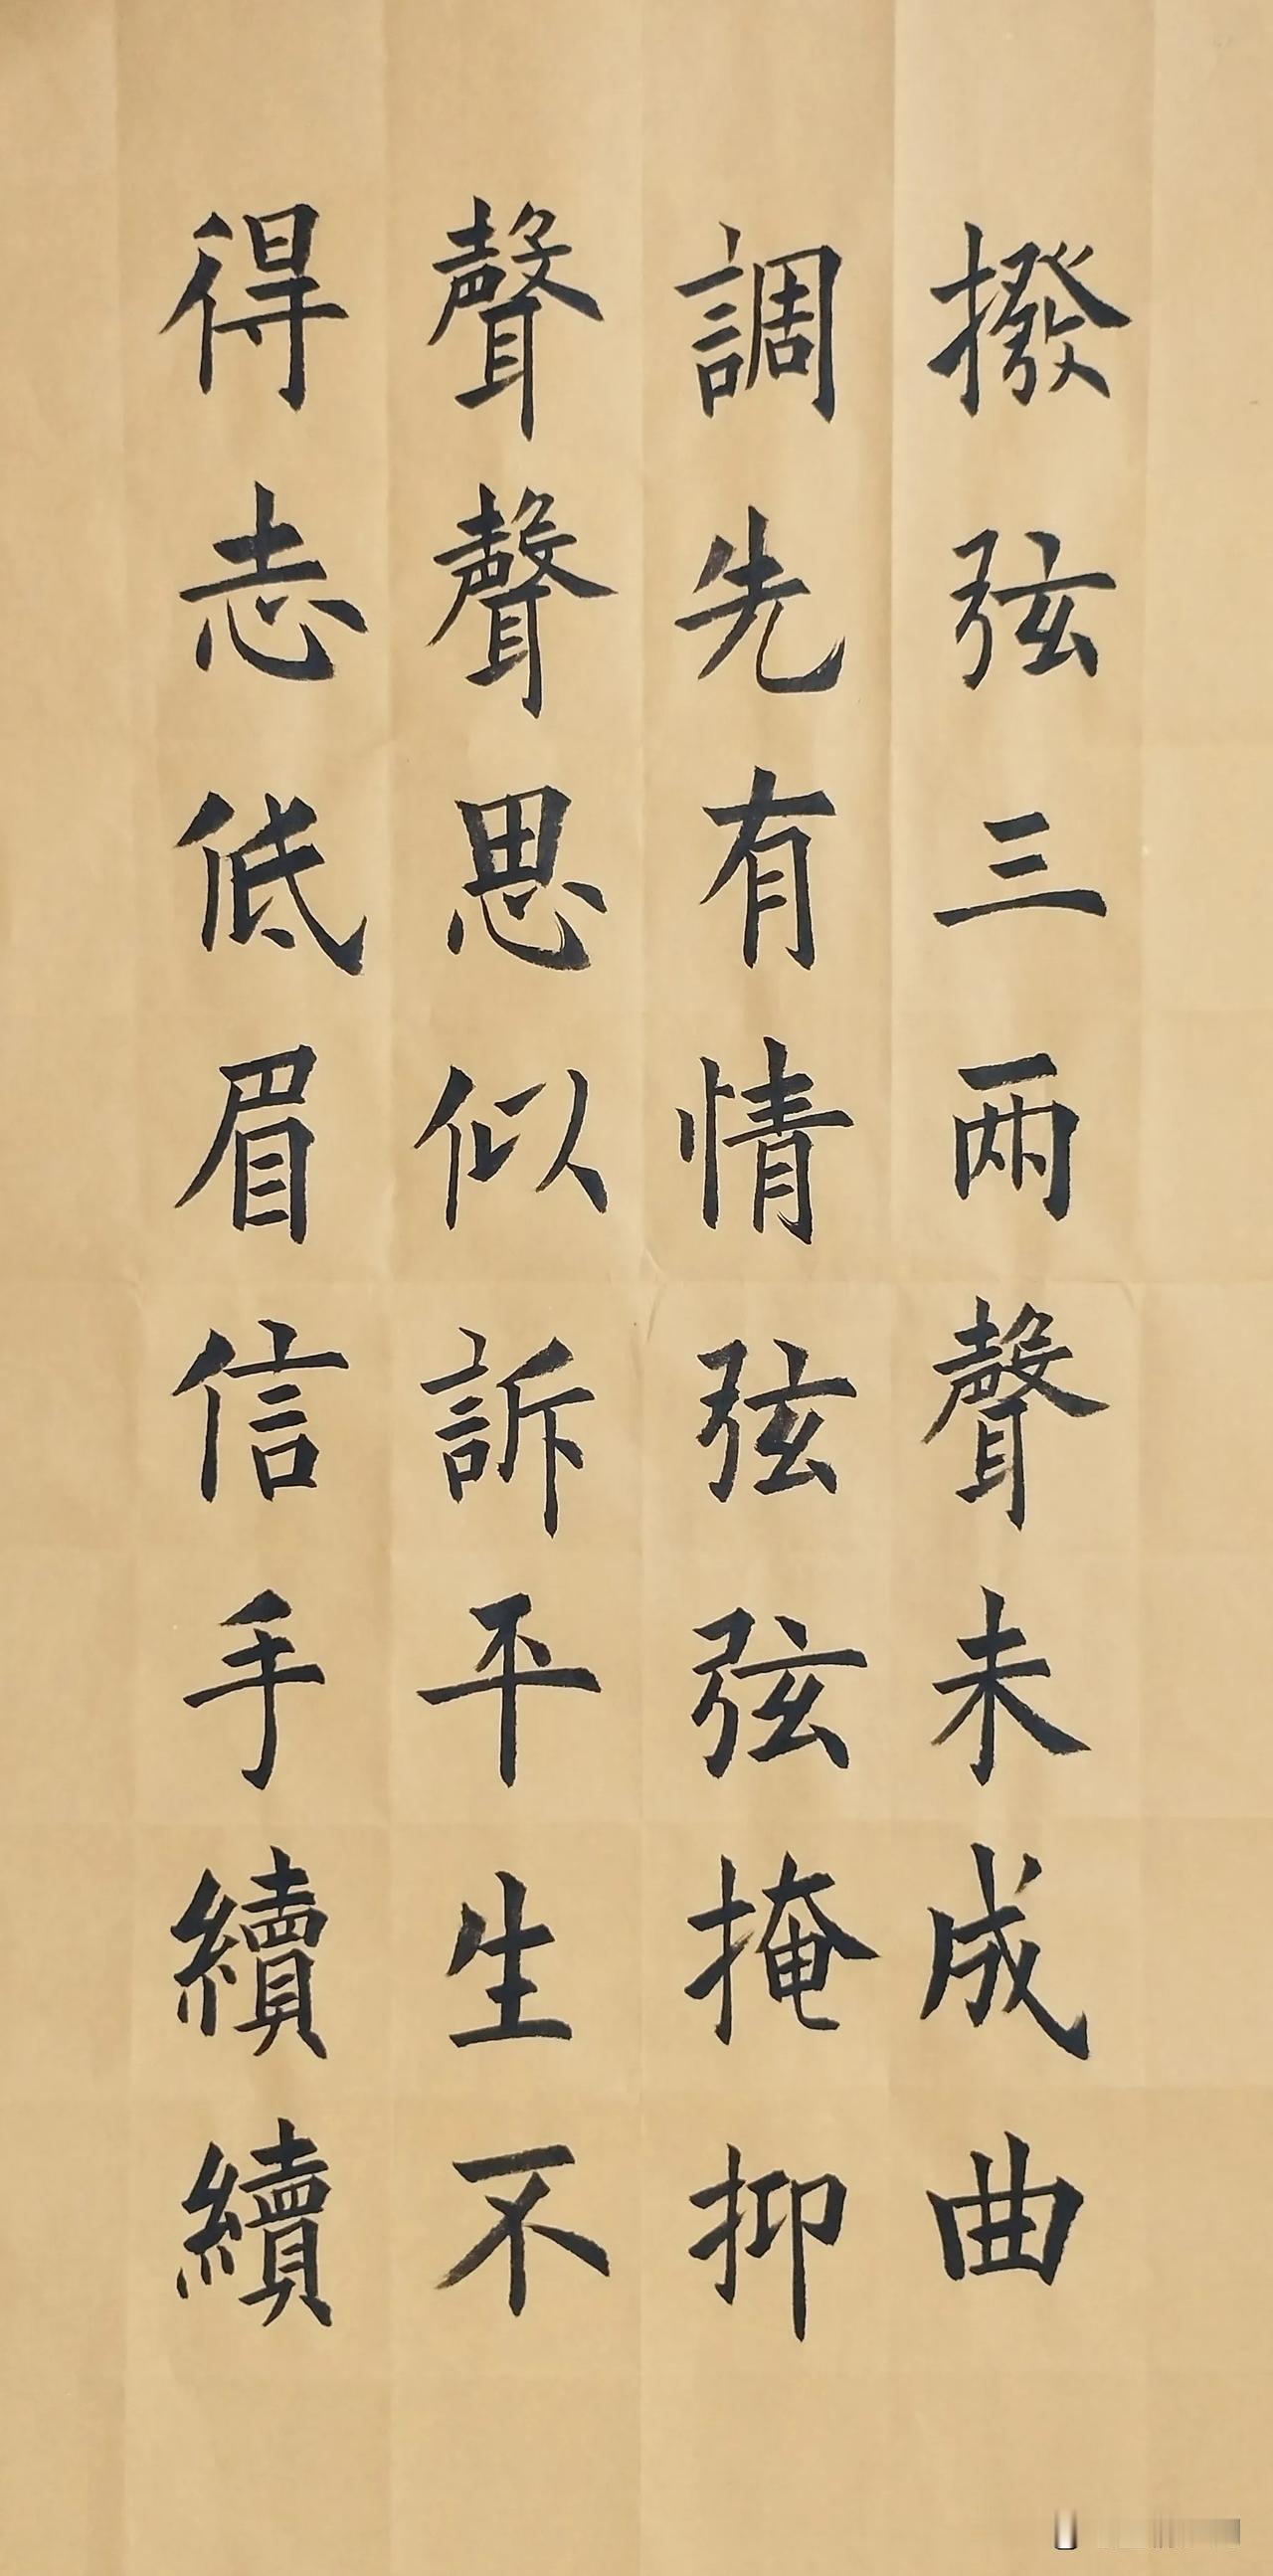 撥弦三兩聲未成曲
調先有情弦弦掩抑
聲聲思似訴平生不
得志低眉信手續續